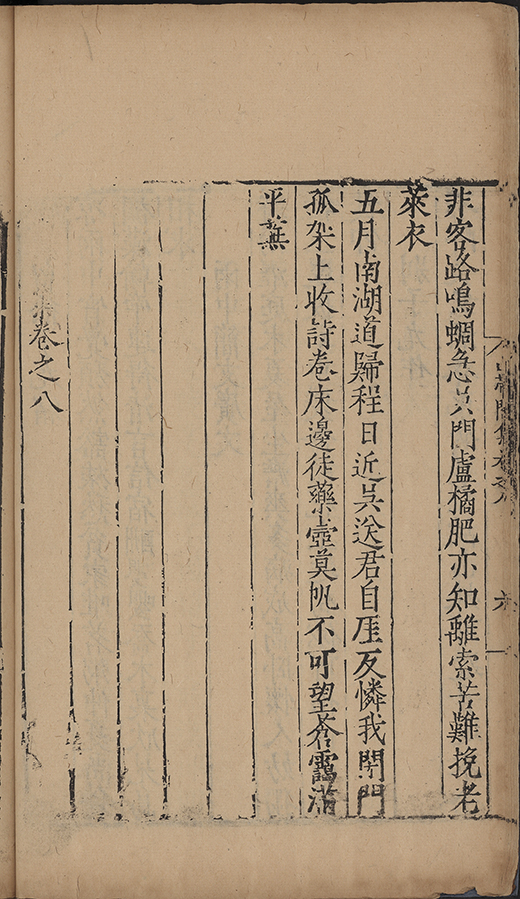 帶閣集卷之八
六
非客路鳴蜩急吳門盧橘肥亦知離索苦難挽老
萊衣
五月南湖道歸程日近吳送君自厓反憐我閉門
孤架上收詩卷床邊徙藥壺莫帆不可望蒼靄滿
平蕪
集卷之八